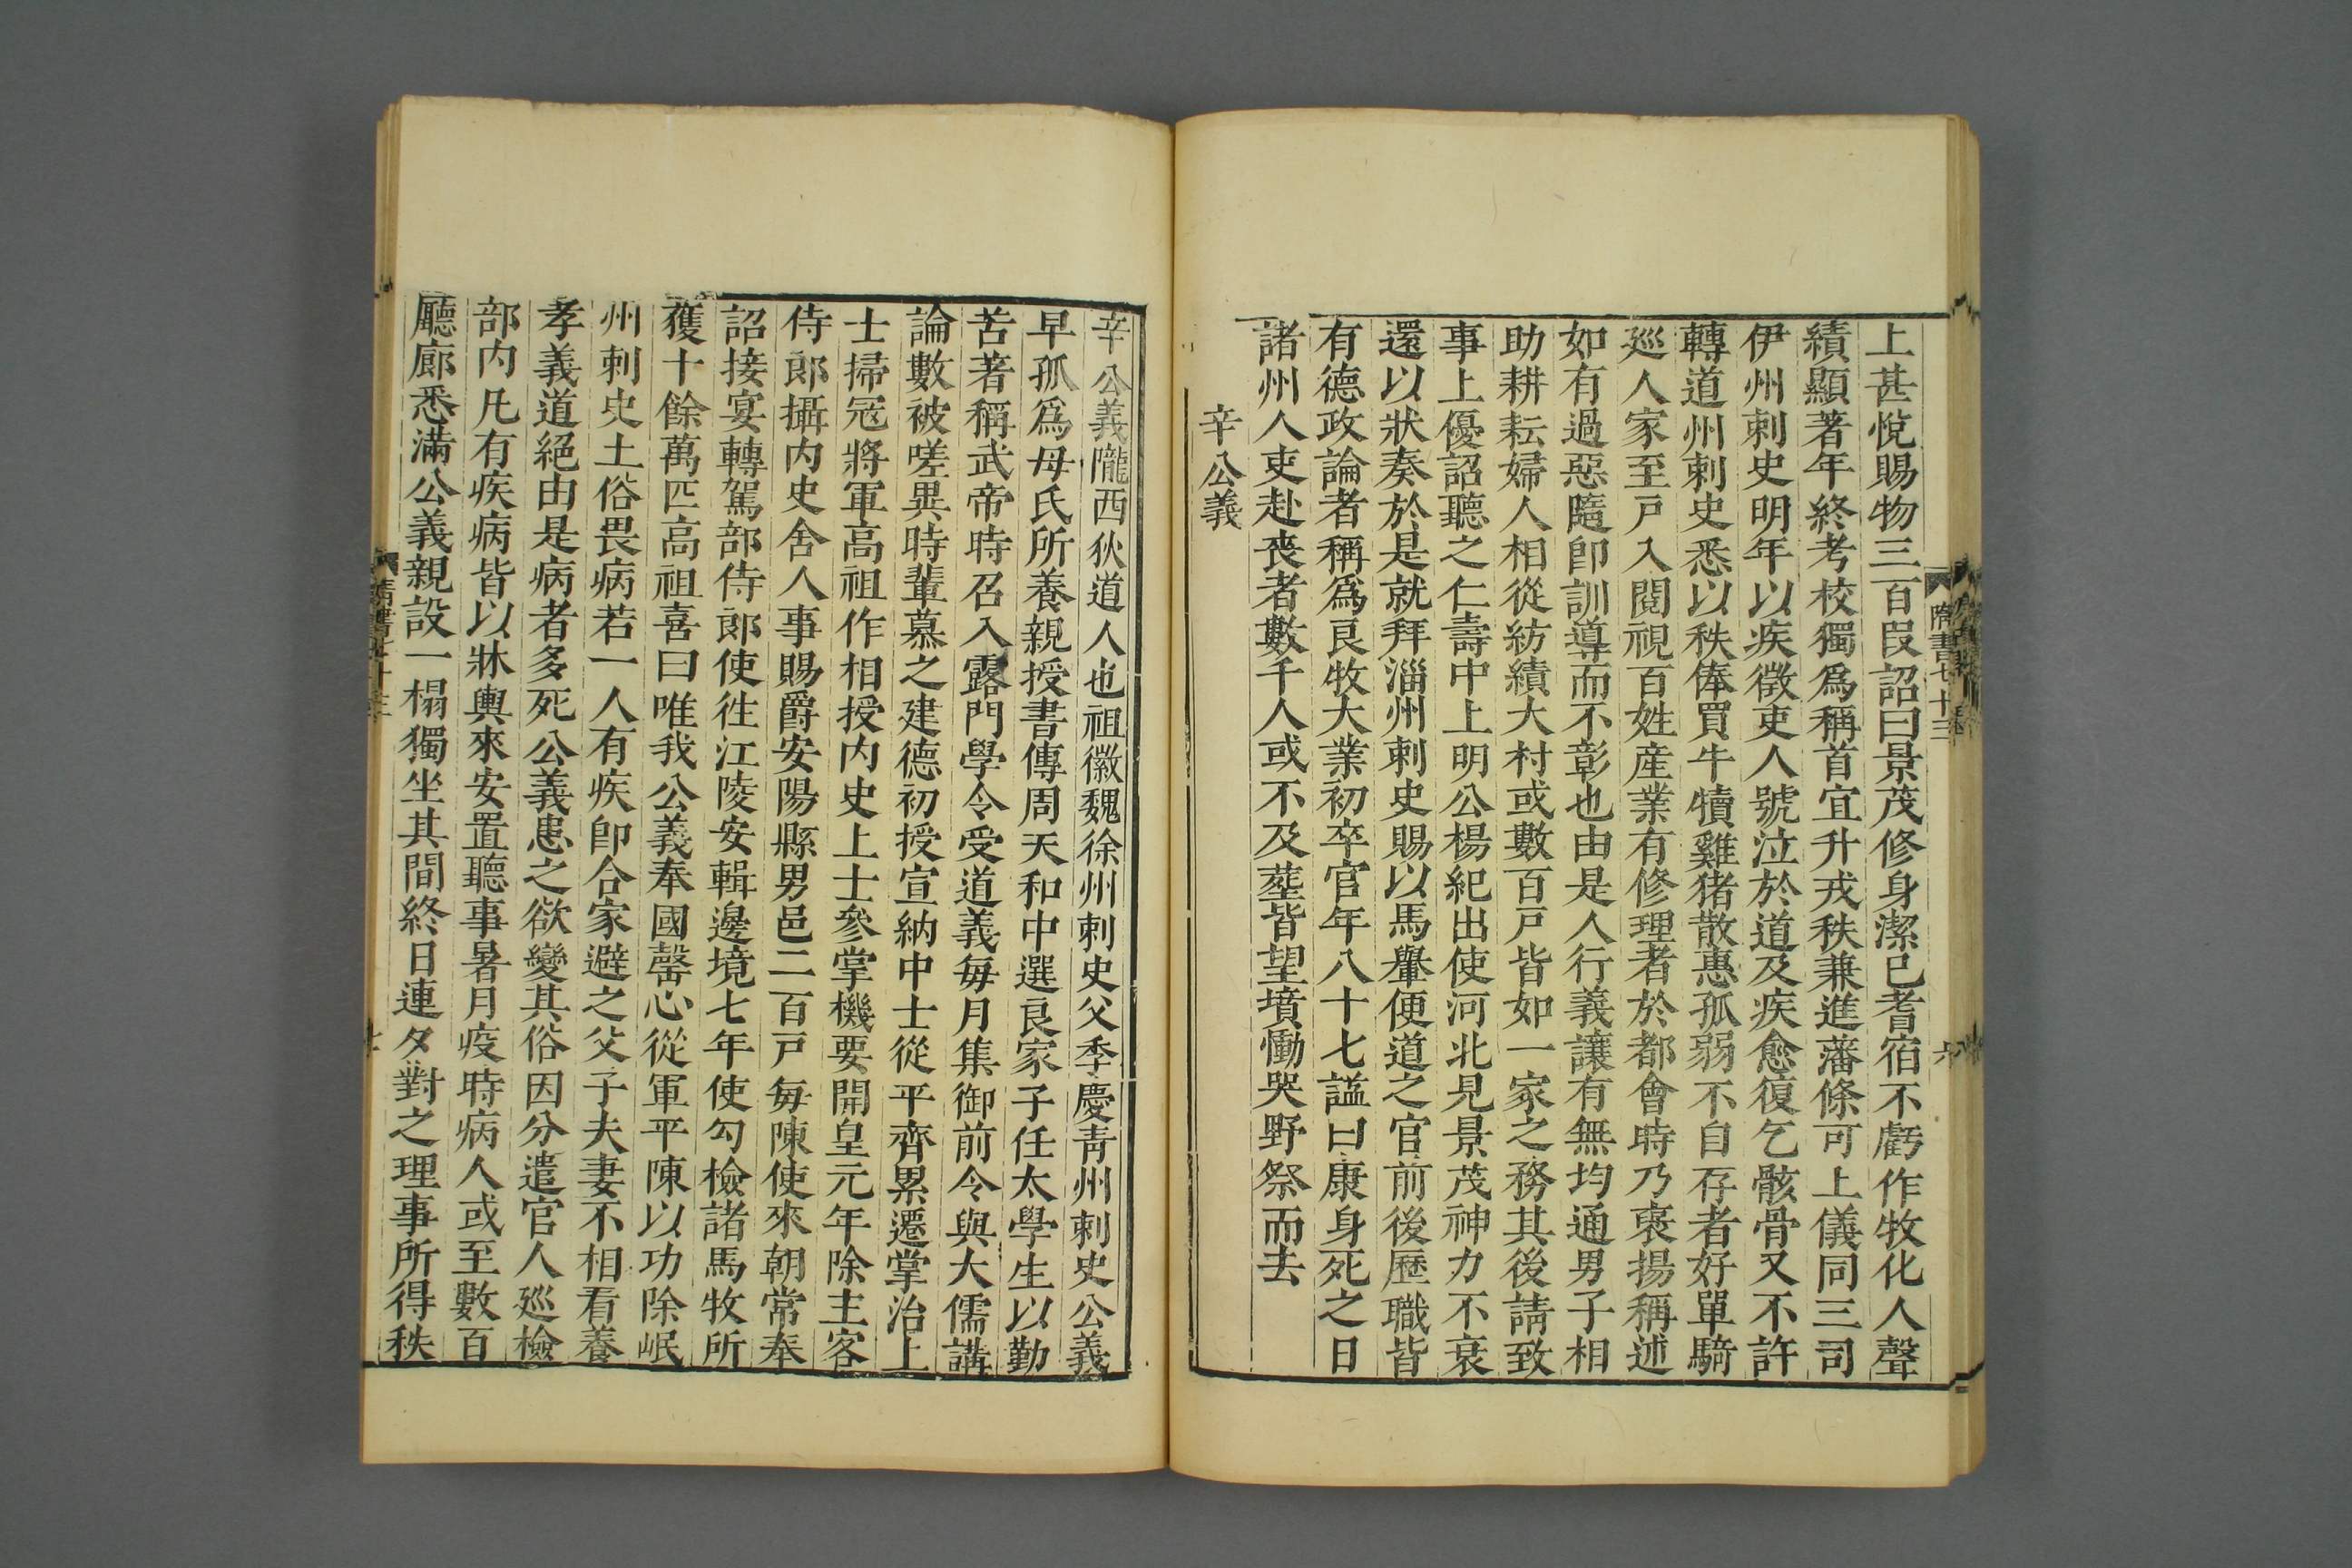 上甚悅賜物三百段詔曰景茂修身潔己耆宿不虧作牧化人聲
績顯著年終考校獨爲稱首宜升戎秩兼進藩條可上儀同三司
伊州刺史明年以疾徵吏人號泣於道及疾愈復乞骸骨又不許
轉道州刺史悉以秩俸買牛犢雞猪散惠孤弱不自存者好單騎
巡人家至戸入閱視百姓産業有修理者於都會時乃褒揚稱述
如有過惡隨即訓導而不彰也由是人行義讓有無均通男子相
助耕耘婦人相從紡績大村或數百戸皆如一家之務其後請致
事上優詔聽之仁壽中上明公楊紀出使河北見景茂神力不衰
還以狀奏於是就拜淄州刺史賜以馬轝便道之官前後歷職皆
有德政論者稱爲良牧大業初卒官年八十七謚曰康身死之日
諸州人吏赴喪者數千人或不及塟皆望墳慟哭野祭而去
辛公義
隋書七十三
六
辛公義隴西狄道人也祖徽魏徐州刺史父季慶青州刺史公義
早孤爲母氏所養親授書傳周天和中選良家子任太學生以勤
苦著稱武帝時召入露門學令受道義每月集御前令與大儒講
論數被嗟異時輩慕之建德初授宣納中士從平齊累遷掌治上
士掃冦將軍高祖作相授内史上士參掌機要開皇元年除主客
侍郎攝内史舍人事賜爵安陽縣男邑二百戸每陳使來朝常奉
詔接宴轉駕部侍郎使往江陵安輯邊境七年使勾檢諸馬牧所
獲十餘萬匹高祖喜曰唯我公義奉國罄心從軍平陳以功除岷
州刺史土俗畏病若一人有疾即合家避之父子夫妻不相看養
孝義道絕由是病者多死公義患之欲變其俗因分遣官人巡檢
部内凡有疾病皆以牀輿來安置聽事暑月疫時病人或至數百
廳廊悉滿公義親設一榻獨坐其間終日連夕對之理事所得秩